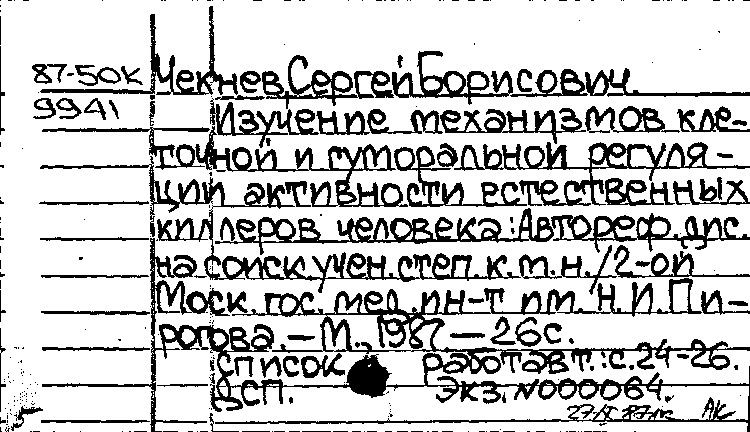 87-50К Чекнев, Сергей Борисович.
9941 Изучение механизмов кле-
точной и гуморальной регуля-
ции активности естественных
киллеров человека: Автореф. дис.
на соиск. учен. степ. к. м. н. / 2-ой
Моск. гос. мед. ин-т им. Н. И. Пи-
рогова. — М., 1987 — 26 с.
Список работ авт.: с. 24-26.
ДСП. Экз. N 000064.
АК